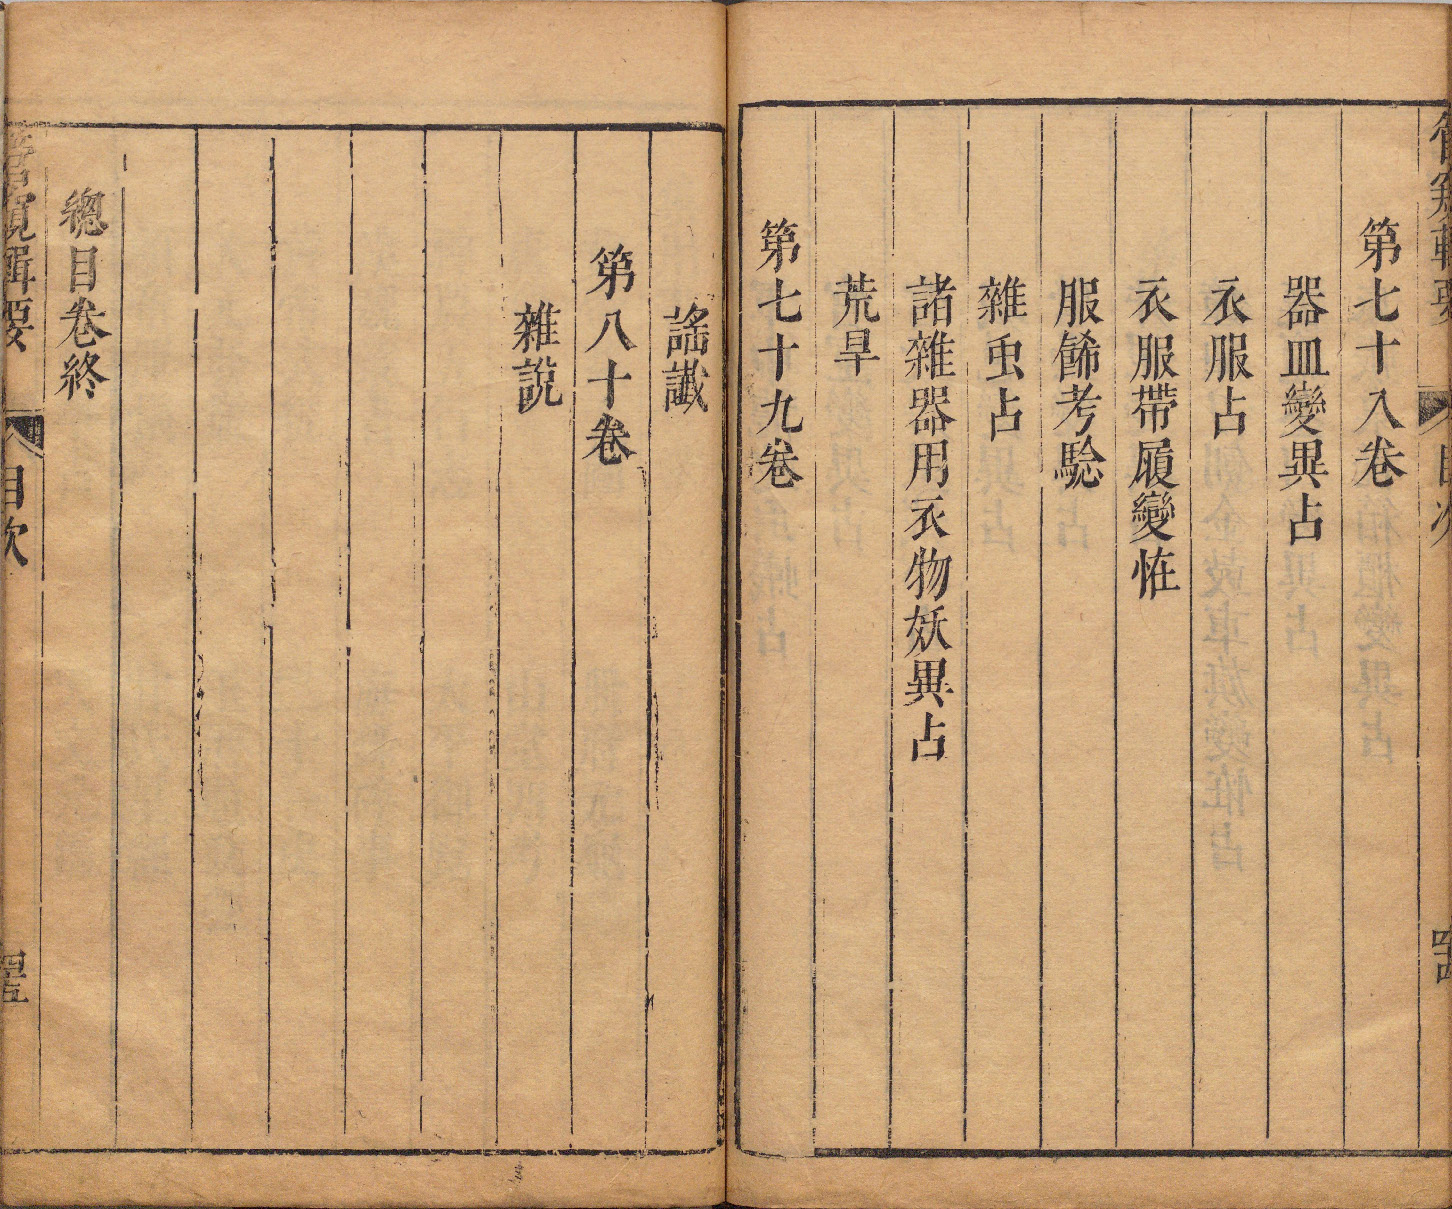 管窺輯要 目次
第七十八卷
器皿變異占
衣服占
衣服帶履變恠
服餙考騐
雜虫占
諸雜器用衣物妖異占
荒旱
第七十九卷
謠讖
第八十卷
雜說
總目卷終
窺輯要 目次